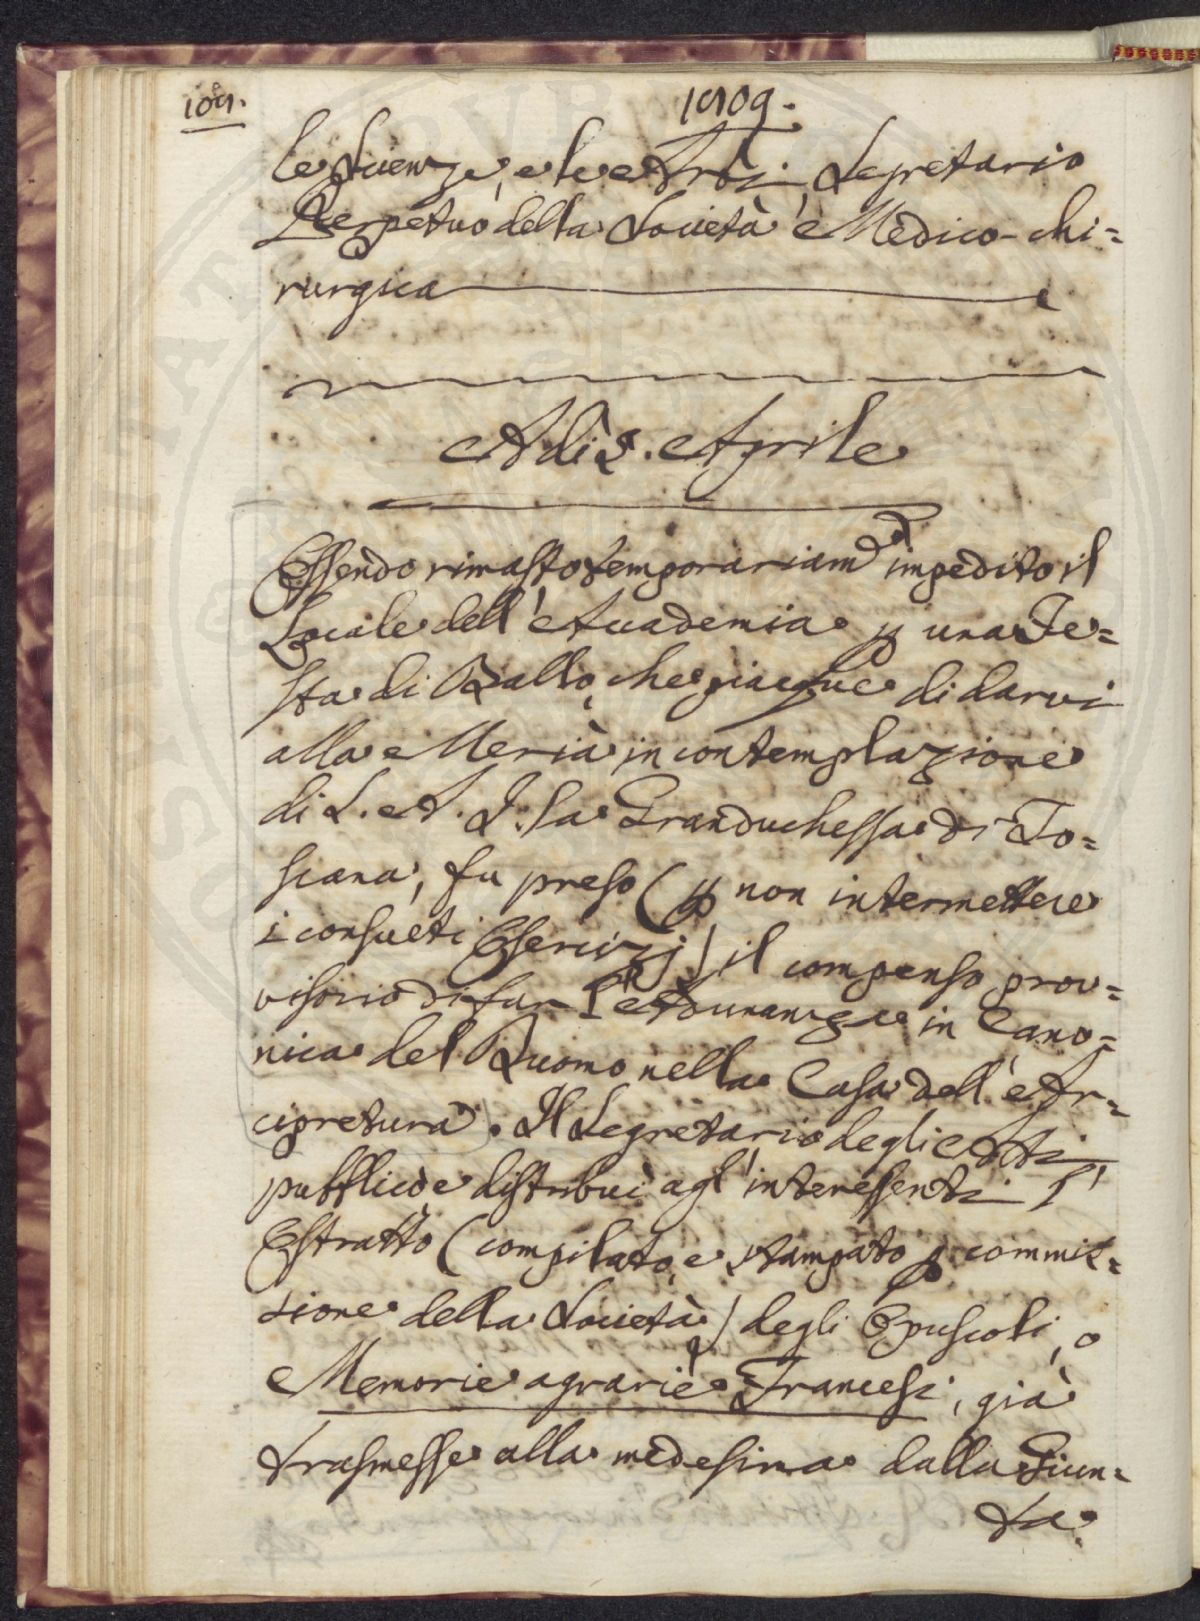 109.
1809.
le Scienze, e le Arti, Segretario
Perpetuo della Società Medico-Chi=
rurgica
Adi 2. Aprile
Essendo rimasto temporariam.e impedito il
Locale dell'Accademia p una Fe=
sta di Ballo, che piacque di darvi
alla Merià in contemplazione
di S. A. I. la Granduchessa di To=
scana, fu preso (p non intermettere
i consueti Esercizj) il compenso prov=
visorio di far l'Adunanze in Cano=
nica del Duomo nella Casa dell'Ar=
cipretura. Il Segretario degli Atti
pubblicò e distribuì agl'interessenti l'
Estratto (compilato, e stampato p commis=
sione della Società) degli Opuscoli, o
Memorie agrarie Francesi, già
trasmesse alla medesima dalla Giun=
ta